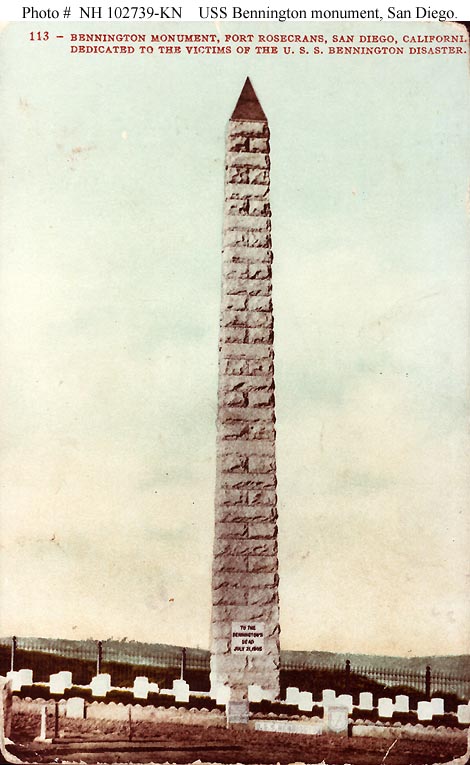 Photo # NH 102739-KN USS Bennington monument, San Diego.
113 - BENNINGTON MONUMENT, FORT ROSECRANS, SAN DIEGO, CALIFORNI.
DEDICATED TO THE VICTIMS OF THE U. S. S. BENNINGTON DISASTER.
TO THE
BENNINGTON'S
DEAD
JULY 21, 1905